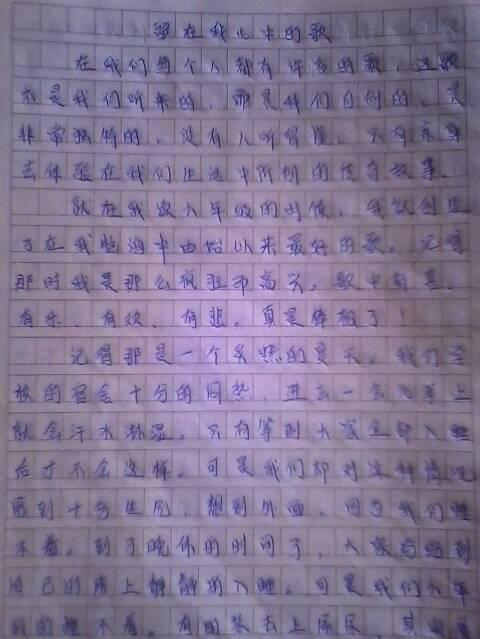 留在我心中的歌
在我们每个人都有许多的歌，这歌
不是我们听来的，而是我们自创的，是
非常独特的，没有人听得懂，只有亲身
去体验在我们生活中所创的传奇故事。
就在我六年级的时候，我就创造
了在我脑海中由始以来最好的歌。记得
那时我是那么疯狂而高兴。歌中有喜、
有乐、有欢、有悲。真是棒极了！
记得那是一个炎热的夏天。我们学
校的宿舍十分的闷热，进去一会儿身上
就会汗水淋湿。只有等到大家全部入睡
后才不会这样。可是我们却对这种情况
感到十分生气，想到外面，因为我们睡
不着。到了晚休的时间了，大家
自己的床上静静的入睡。可是我们六年
级的睡不着。有的装去上厕所